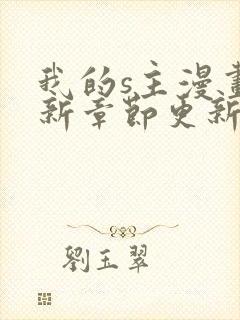 我的s主漫畫
新章節更新
劉玉翠